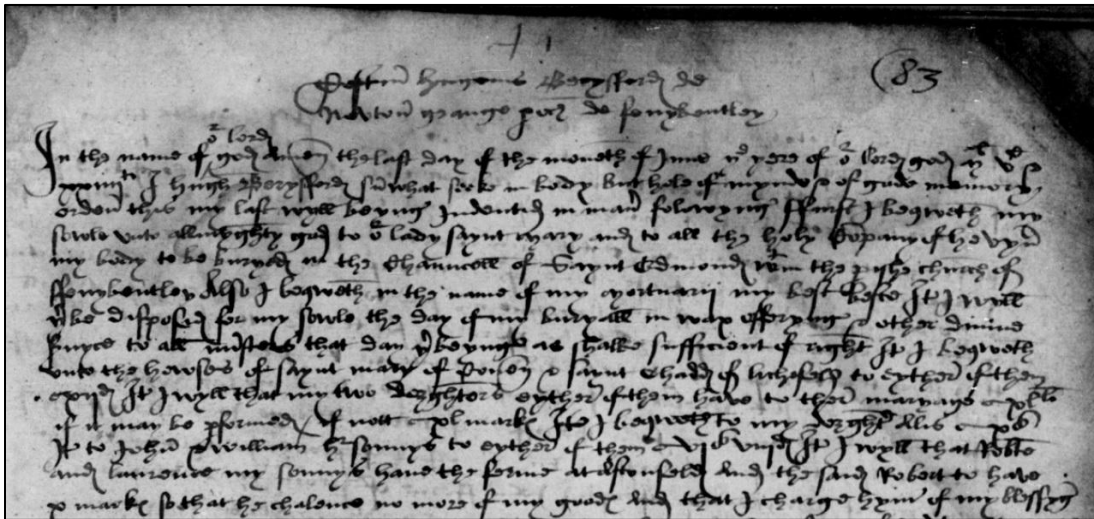 83
Testm hugonis Berysford de
Newton grange poch de fenybentley
or lord
In the name of god Amen the last day of the moneth of June ye yere of or lord god
xxiiiti I hugh Berysford sūwhat seeke in body but hole of mynde & of gude memory
orden this my last wyll beyng Indentid in manr folowyng ffirst I beqweth my
sowle unto allmyghty god to or lady saynt mary and to all the holy Cōpany of hevyn
my body to be buryed in the Chauncell of Saynt Edmond wtin the pishe church of
ffenybentley Also I beqweth in the name of my mortuarii my best beste It I wyll
yt be disposed for my sowle the day of my buryall in wax offeryng & other divine
suyce to all mīsters that day yr beyng as shalbe sufficient of right It I beqweth
unto the howses of saynt mary of & saynt Chadd of lichefeld to eyther of them
xiid It I wyll that my two doghters eyther of them have to ther maryage xl li
if it may be pformed if nott xl marks Ite I beqweth to my doght Alis xls
It to John & william hyr sonnys to eyther of them vis viiid It I wyll that Robte
and laurence my sonnys have the ferme at Alstonfeld And the said Robert to have
x marks so that he chalence no more of my goods And that I charge hym of my blessyng